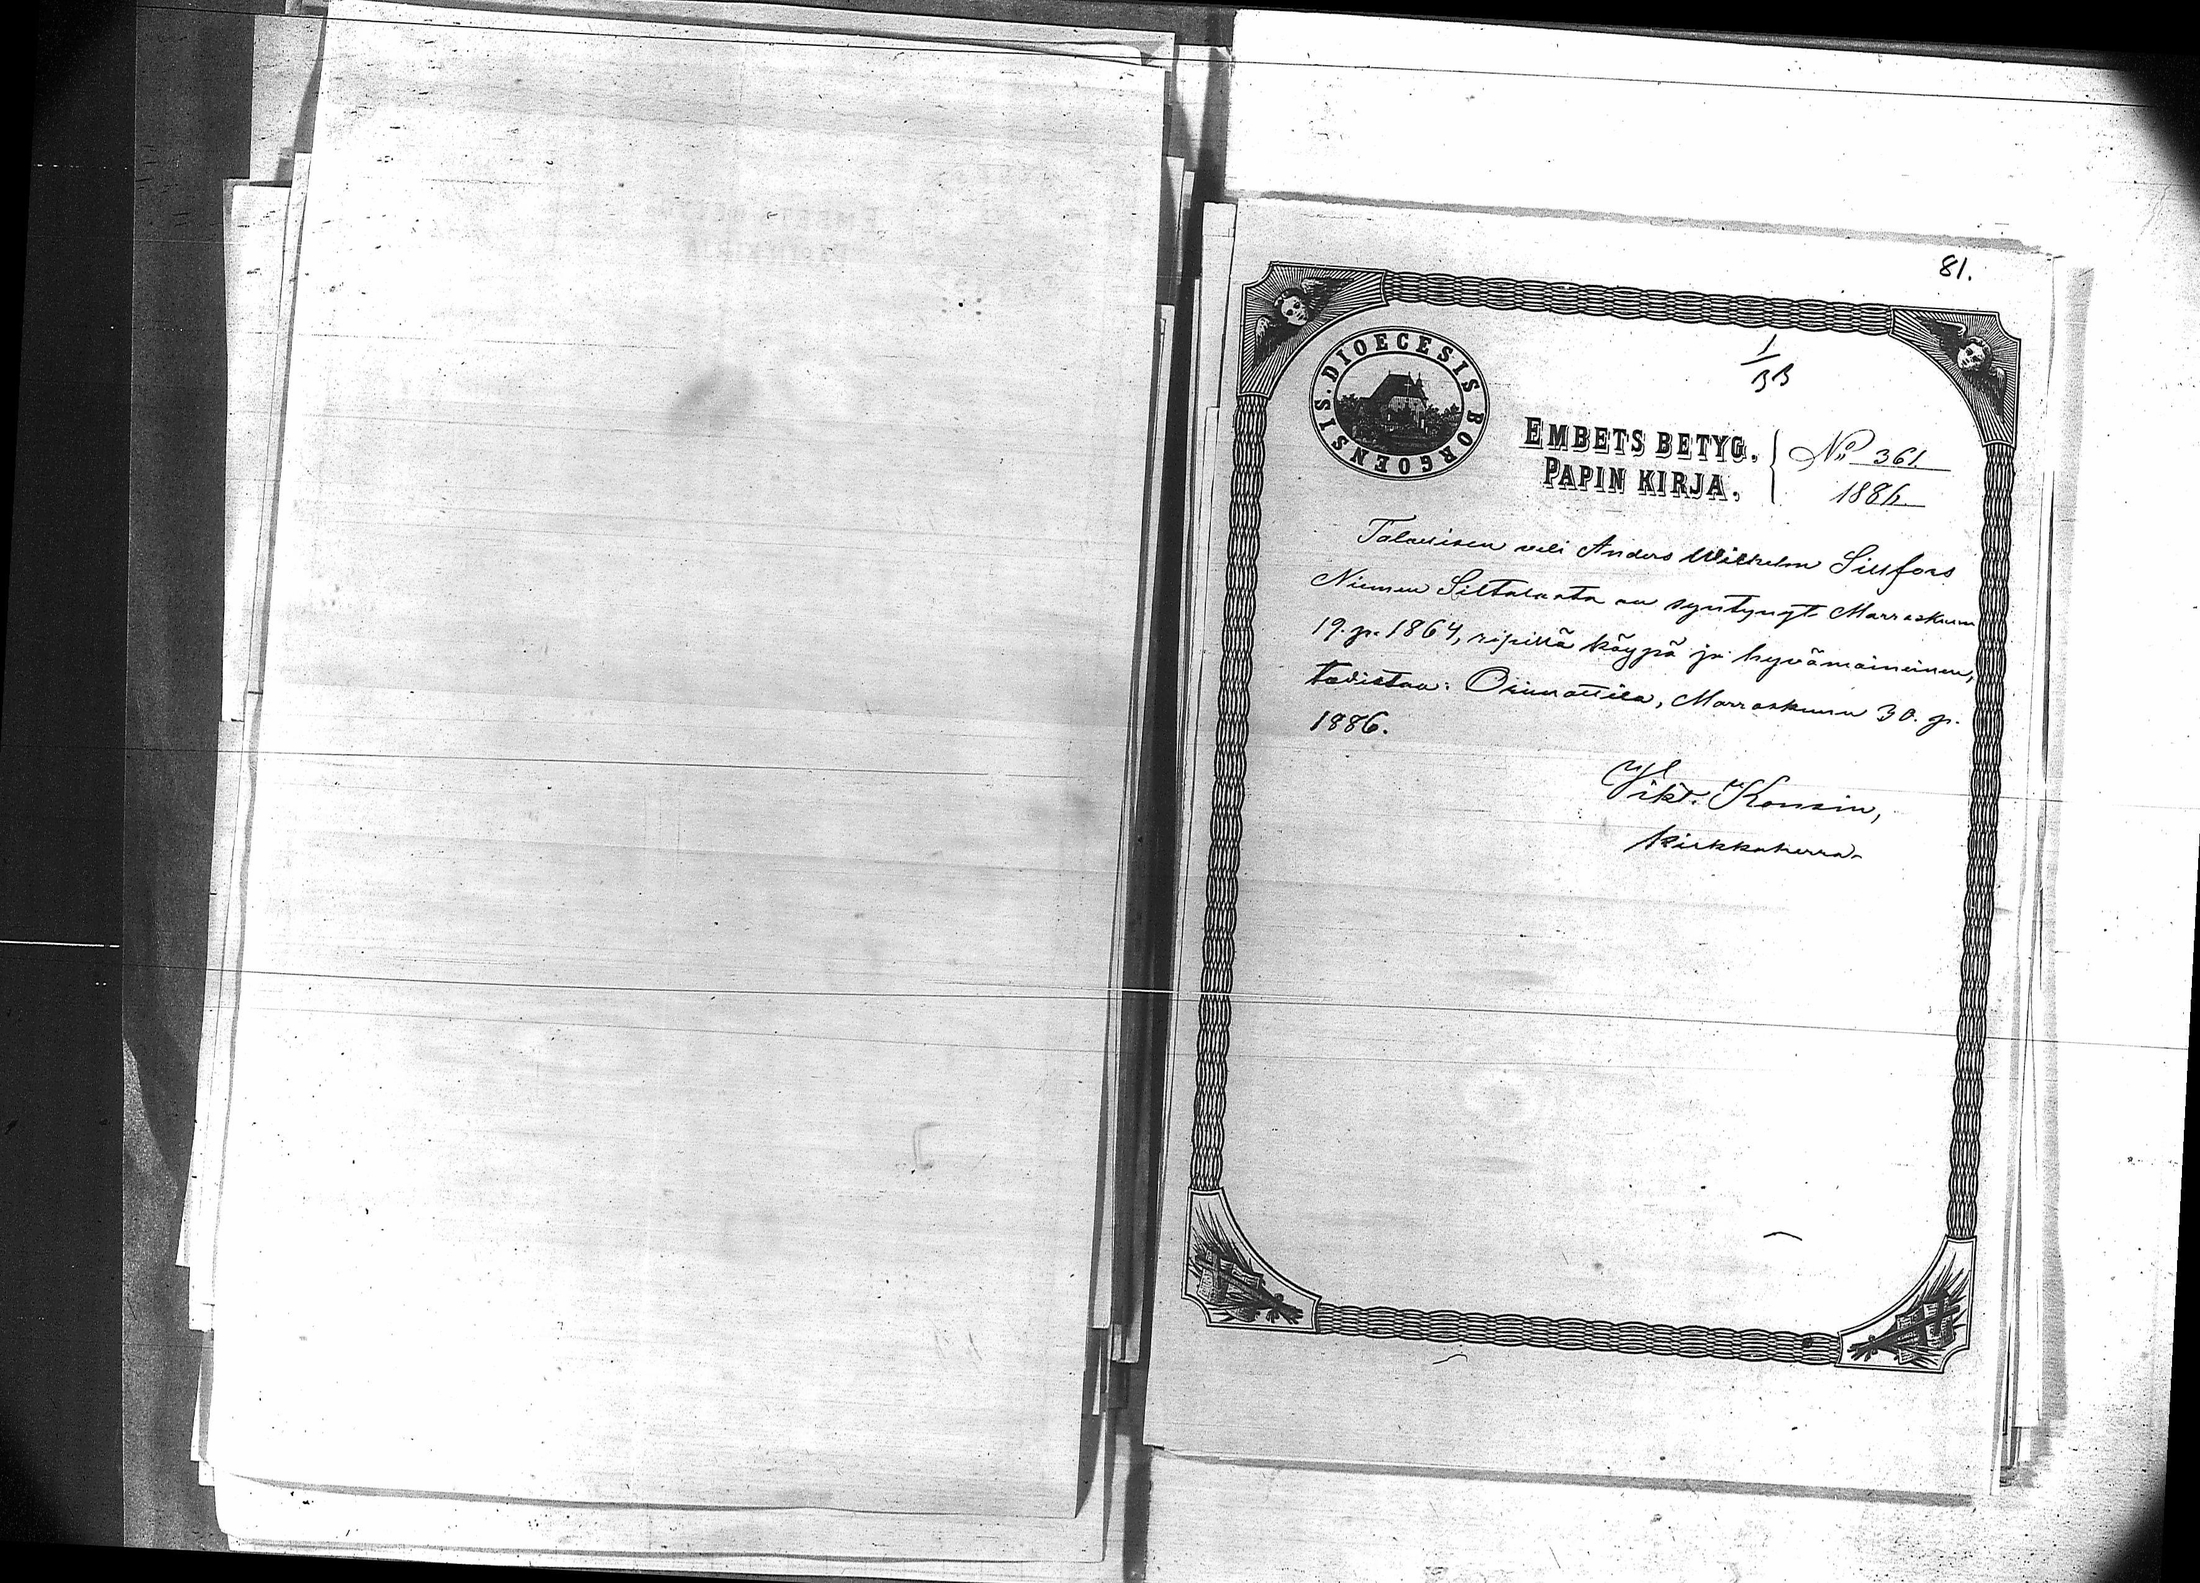 81.
1/BB
DIOECESIS BORGOENSIS.
EMBETS BETYG.
PAPIN KIRJA.
No 361.
1886.
Talollisen veli Anders Wilhelm Sillfors
Niemen Siltalasta on syntynyt Marraskuun
19. p. 1864, ripillä käypä ja hyvämaineinen,
todistaa: Orimattila, Marraskuun 30. p.
1886.
Vikt.
kirkkoherra.